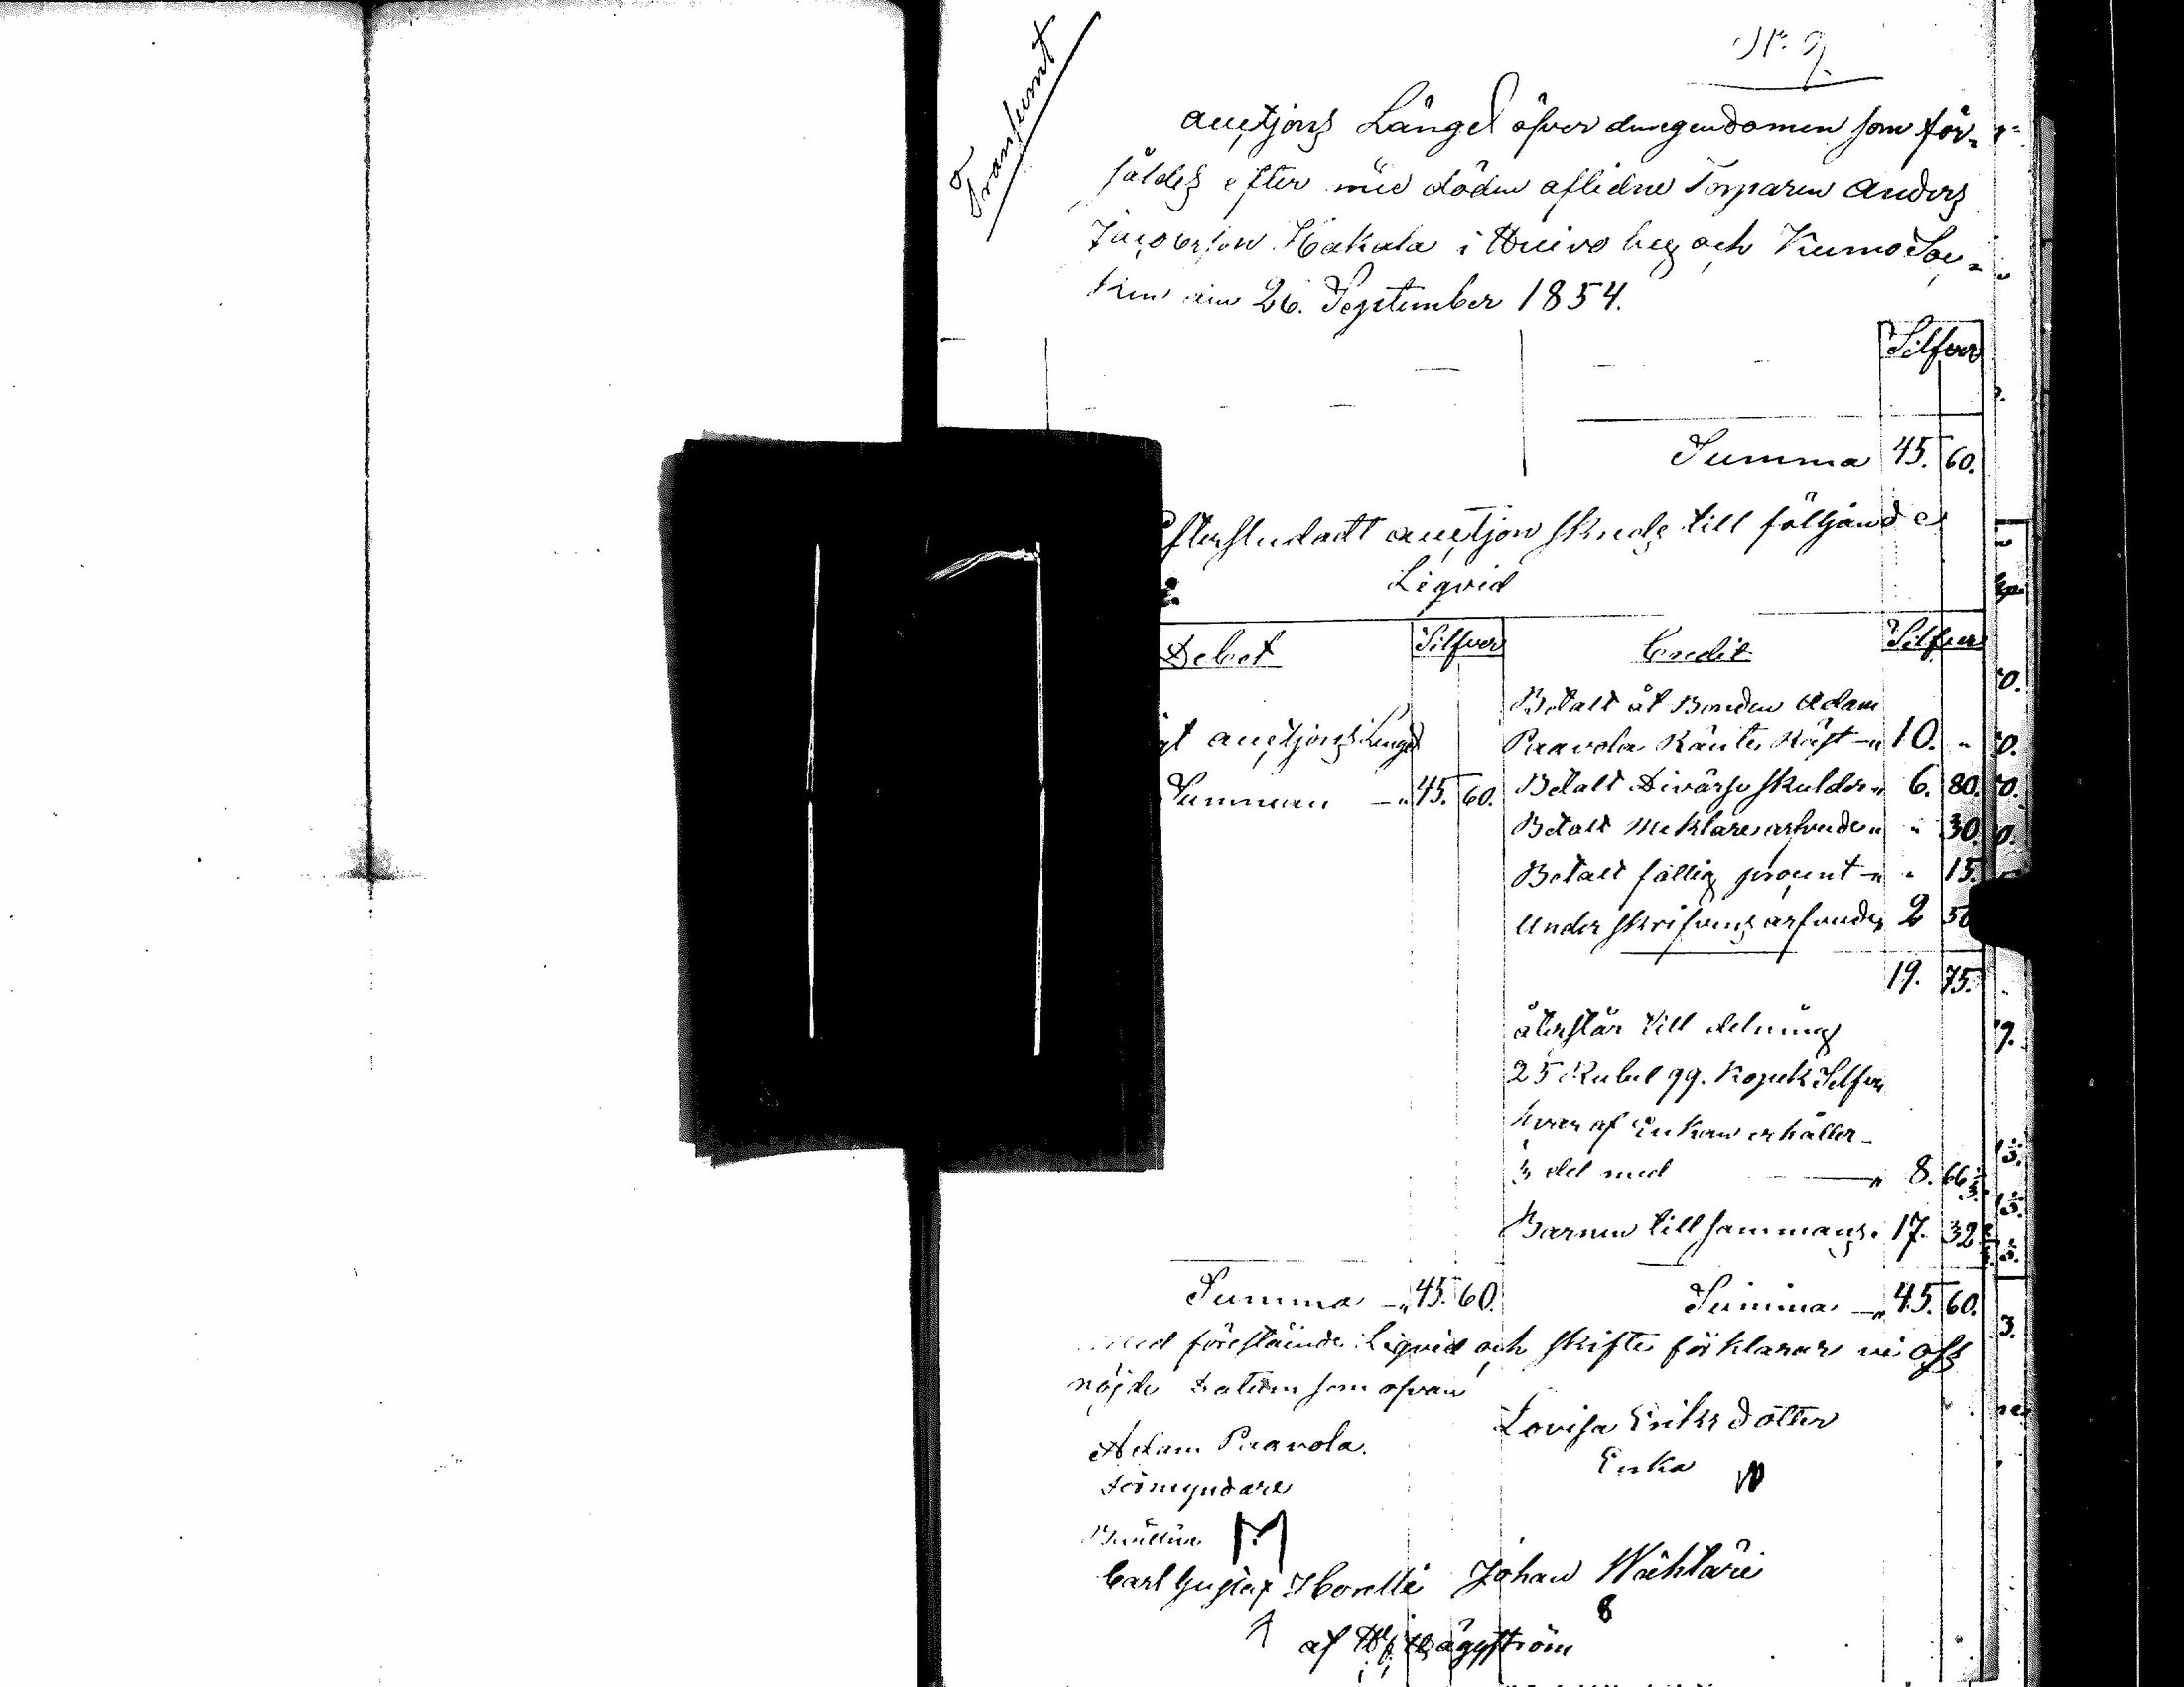 Nr. 9.
Transumt
Auctjons Längd öfver ännegendomen som för-
såldes efter mid döden aflidne Torparen Anders
Jacobsson Hakala i Huivo by och Kumo Soc-
ken den 26. September 1854.
Silfver
Summa 45. 60.
Efterslutadt auctjon skreds till följande
Liqvid
Debet Silfver Credit Silfver
Betalt åt Bonden Adam
Paavola Ränte Räst —" 10. "
auctjons Längd
Summan —" 45. 60.
Betalt Divärse skulder " 6. 80.
Betalt Meklare arfvode " " 30.
Betalt fattig procent —" " 15.
Under skrifvens arfvode, 2 50
19. 75.
återstår till delning
25 Rubel 99. Kopek Silfver
hvar af Enkan erhåller
⅓ del med —" 8. 66⅓.
Barnen till sammans. 17. 32⅔
Summa —" 45. 60. Summa —" 45. 60.
Med förestående Liqvid och skifte förklarar vi oss
nöjde datum som ofvan
Adam Paavola.
Förmyndare
Lovisa Eriks dotter
Enka
Bevittna
Carl Gustaf Johan
af Häggström